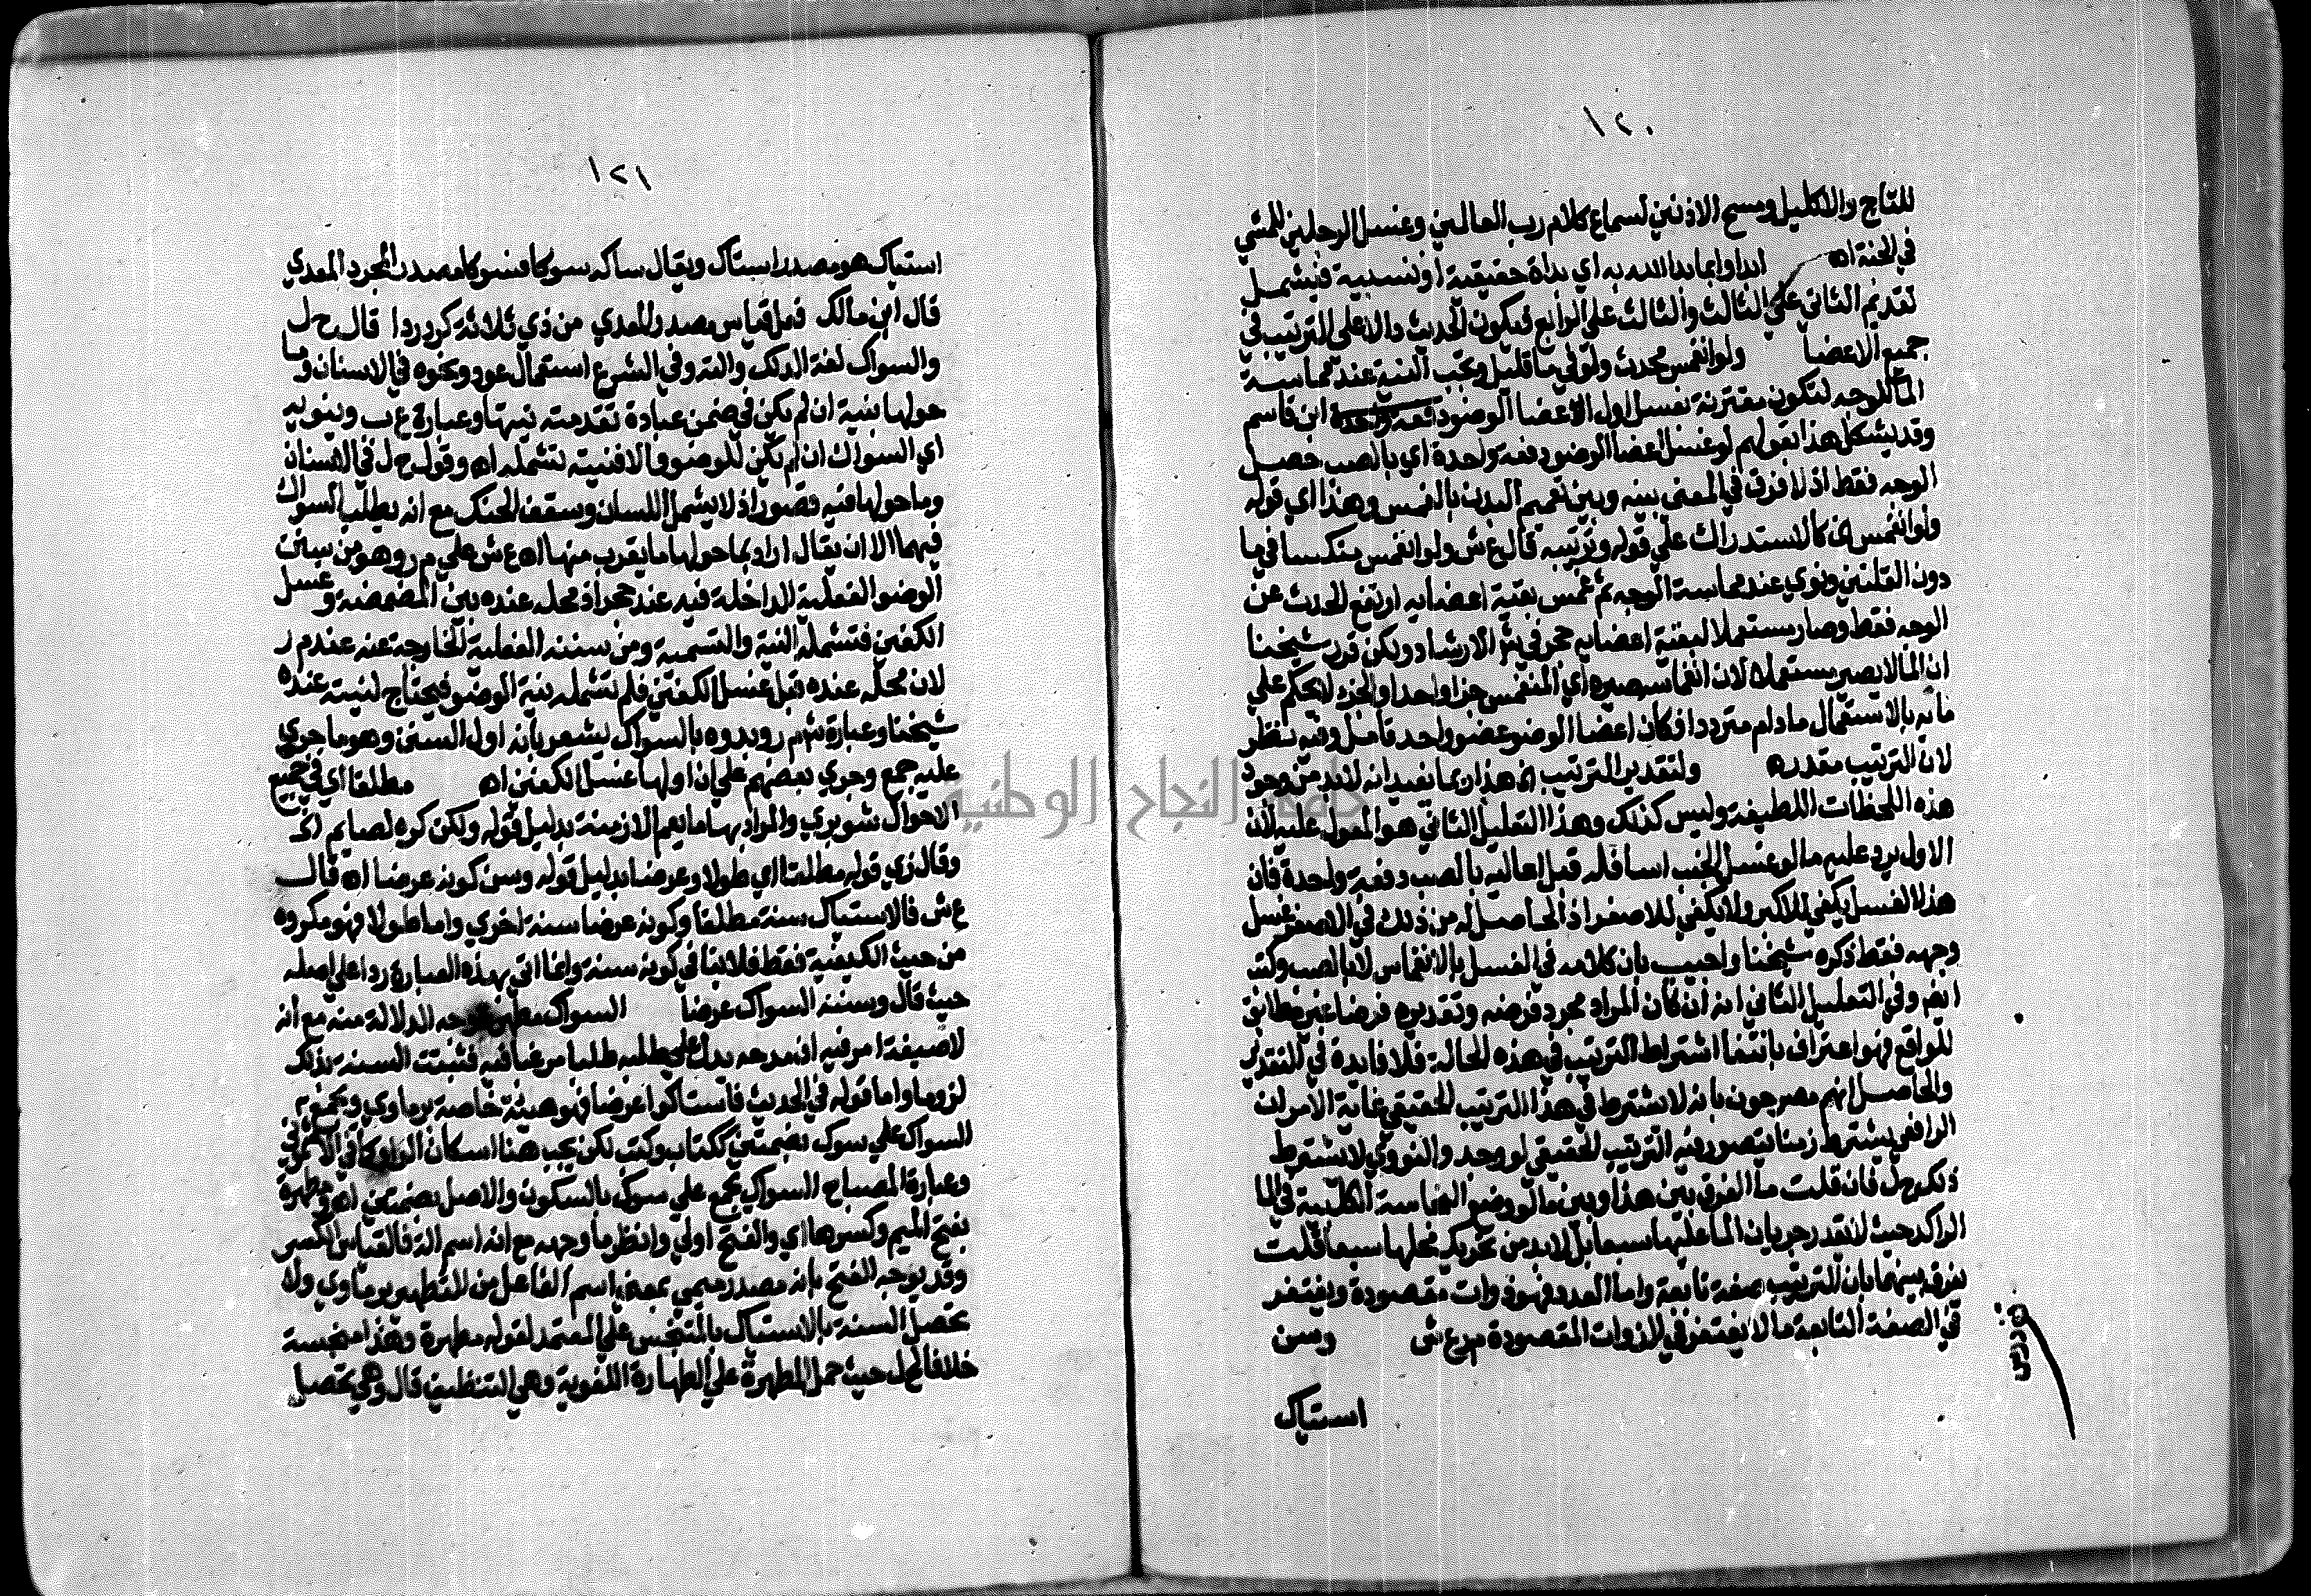 ١٢٠
للتاج والاكليل ومسح الاذنين لسماع كلام رب العالمين وغسل الرجلين للمشي
في الجنة اه ابدا وابما بدا الله به اي بداة حقيقية او نسبية فيشمل
تقديم الثاني علي الثالث والثالث علي الرابع فيكون الحديث دالا علي الترتيب في
جميع الاعضا ولو انغمس محدث ولو في ما قليل وتجب النية عند مماسة
الما للوجه لتكون مقترنة بغسل اول الاعضا الوضو دفعة واحدة ابن قاسم
وقد يشكل هذا بقولهم لو غسل اعضا الوضو دفعة واحدة اي بالصب حصل
الوجه فقط اذ لا فرق في المعني بينه وبين تعميم البدن بالغمس وهذا اي قوله
ولو انغمس كالاستدراك علي قوله وترتيبه قال ع ش ولو انغمس منكسا في ما
دون القلتين ونوي عند مماسة الوجه ثم غمس بقية اعضايه ارتفع الحدث عن
الوجه فقط وصار مستعملا لبقية اعضايه حج في شرح الارشاد ولكن قرر شيخنا
ان الما لا يصير مستعملا لان انغماسه صيره اي المنغمس جزا واحدا والجزء لا يحكم علي
مايه بالاستعمال ما دام مترددا فكان اعضا الوضو عضو واحد تامل وفيه نظر
لان الترتيب مقدر اه ولتقدير الترتيب الخ هذا ربما يفيد انه لابد من وجود
هذه اللحظات اللطيفة وليس كذلك وهذا التعليل الثاني هو المعول عليه لان
الاول يرد عليه ما لو غسل الجنب اسافله قبل اعاليه بالصب دفعة واحدة فان
هذا الغسل يكفي للاكبر ولا يكفي للاصغر اذ الحاصل له من ذلك في الاصغر غسل
وجهه فقط ذكره شيخنا واجيب بان كلامه في الغسل بالانغماس لا بالصب وكتب
ايضا وفي التعليل الثاني انه ان كان المراد مجرد فرضه وتقديره فرضا غير مطابق
للواقع فهو اعتراف بانتفا اشتراط الترتيب في هذه الحالة فلا فايدة في التقدير
والحاصل انهم مصرحون بانه لا يشترط في هذا الترتيب الحقيقي غاية الامر ان
الرافعي يشترط زمنا يتصور فيه الترتيب الحقيقي لو وجد والنووي لا يشترط
ذلك ح ل فان قلت ما الفرق بين هذا وبين ما لو وضع المتنجس النجاسة الكلبية في الما
الراكد حيث لا يقدر جريان الما عليها سبعا بل لابد من تحريك محلها سبعا قلت
يفرق بينهما بان الترتيب صفة تابعة واما العدد فهو ذوات مقصودة ويغتفر
في الصفة التابعة ما لا يغتفر في الذوات المقصودة م ر ع ش وسن
استياك
١٢١
استياك هو مصدر استاك ويقال ساك يسوكا فسوكا مصدر المجرد المعدي
قال ابن مالك فعل قياس مصدر المعدي من ذي ثلاثة كرد ردا قال ح ل
والسواك لغة الدلك والته وفي الشرع استعمال عود ونحوه في الاسنان وما
حولها بنية ان لم يكن في ضمن عبادة تقدمته نيتها وعبارة ع ب وينوي به
اي السواك ان لم يكن للوضو والا فنيته تشمله اه وقول ح ل في الاسنان
وما حولها فيه قصور اذ لا يشمل اللسان وسقف الحنك مع انه يطلب السواك
فيهما الا ان يقال اراد بما حولها ما يقرب منها اه ع ش علي م ر وهو من سنن
الوضو الفعلية الداخلة فيه عند حج اذ محله عنده بين المضمضة وغسل
الكفين فتشمله النية والتسمية ومن سننه الفعلية الخارجة عنه عند م ر
لان محله عنده قبل غسل الكفين فلم تشمله نية الوضو فيحتاج لنية عنده
شيخنا وعبارة ش م ر وبدوه بالسواك يشعر بانه اول السنن وهو ما جري
عليه جمع وجري بعضهم علي ان اولها غسل الكفين اه مطلقا اي في جميع
الاحوال شوبري والمراد بها ما يعم الازمنة بدليل قوله ولكن كره لصايم الخ
وقال ز ي قوله مطلقا اي طولا وعرضا بدليل قوله وسن كونه عرضا اه قال
ع ش فالاستياك سنة مطلقا وكونه عرضا سنة اخري واما طولا فهو مكروه
من حيث الكيفية فقط فلا ينافي كونه سنة وانما اتي بهذه العبارة ردا علي اصله
حيث قال وسننه السواك عرضا السواك مطهرة وجه الدلالة منه مع انه
لا صيغة امر فيه ان مدحه يدل علي طلبه طلبا مرغبا فيه فثبتت السنة بذلك
لزوما واما قوله في الحديث فاستاكوا عرضا فهو هيئة خاصة برماوي ويجمع
السواك علي سوك بضمتين ككتاب وكتب لكن يجب هنا اسكان الواو كما في الاشموني
وعبارة المصباح السواك يجمع علي سوك بالسكون والاصل بضمتين اه ومطهرة
بفتح الميم وكسرها اي والفتح اولي وانظر ما وجهه مع انه اسم الة فالقياس الكسر
وقد يوجه الفتح بانه مصدر ميمي بمعني اسم الفاعل من التطهير برماوي ولا
تحصل السنة بالاستياك بالمتنجس علي المعتمد لقوله مطهرة وهذا منجسة
خلافا لح ل حيث حمل المطهرة علي الطهارة اللغوية وهي التنظيف قال وهي تحصل
جامعة النجاح الوطنية